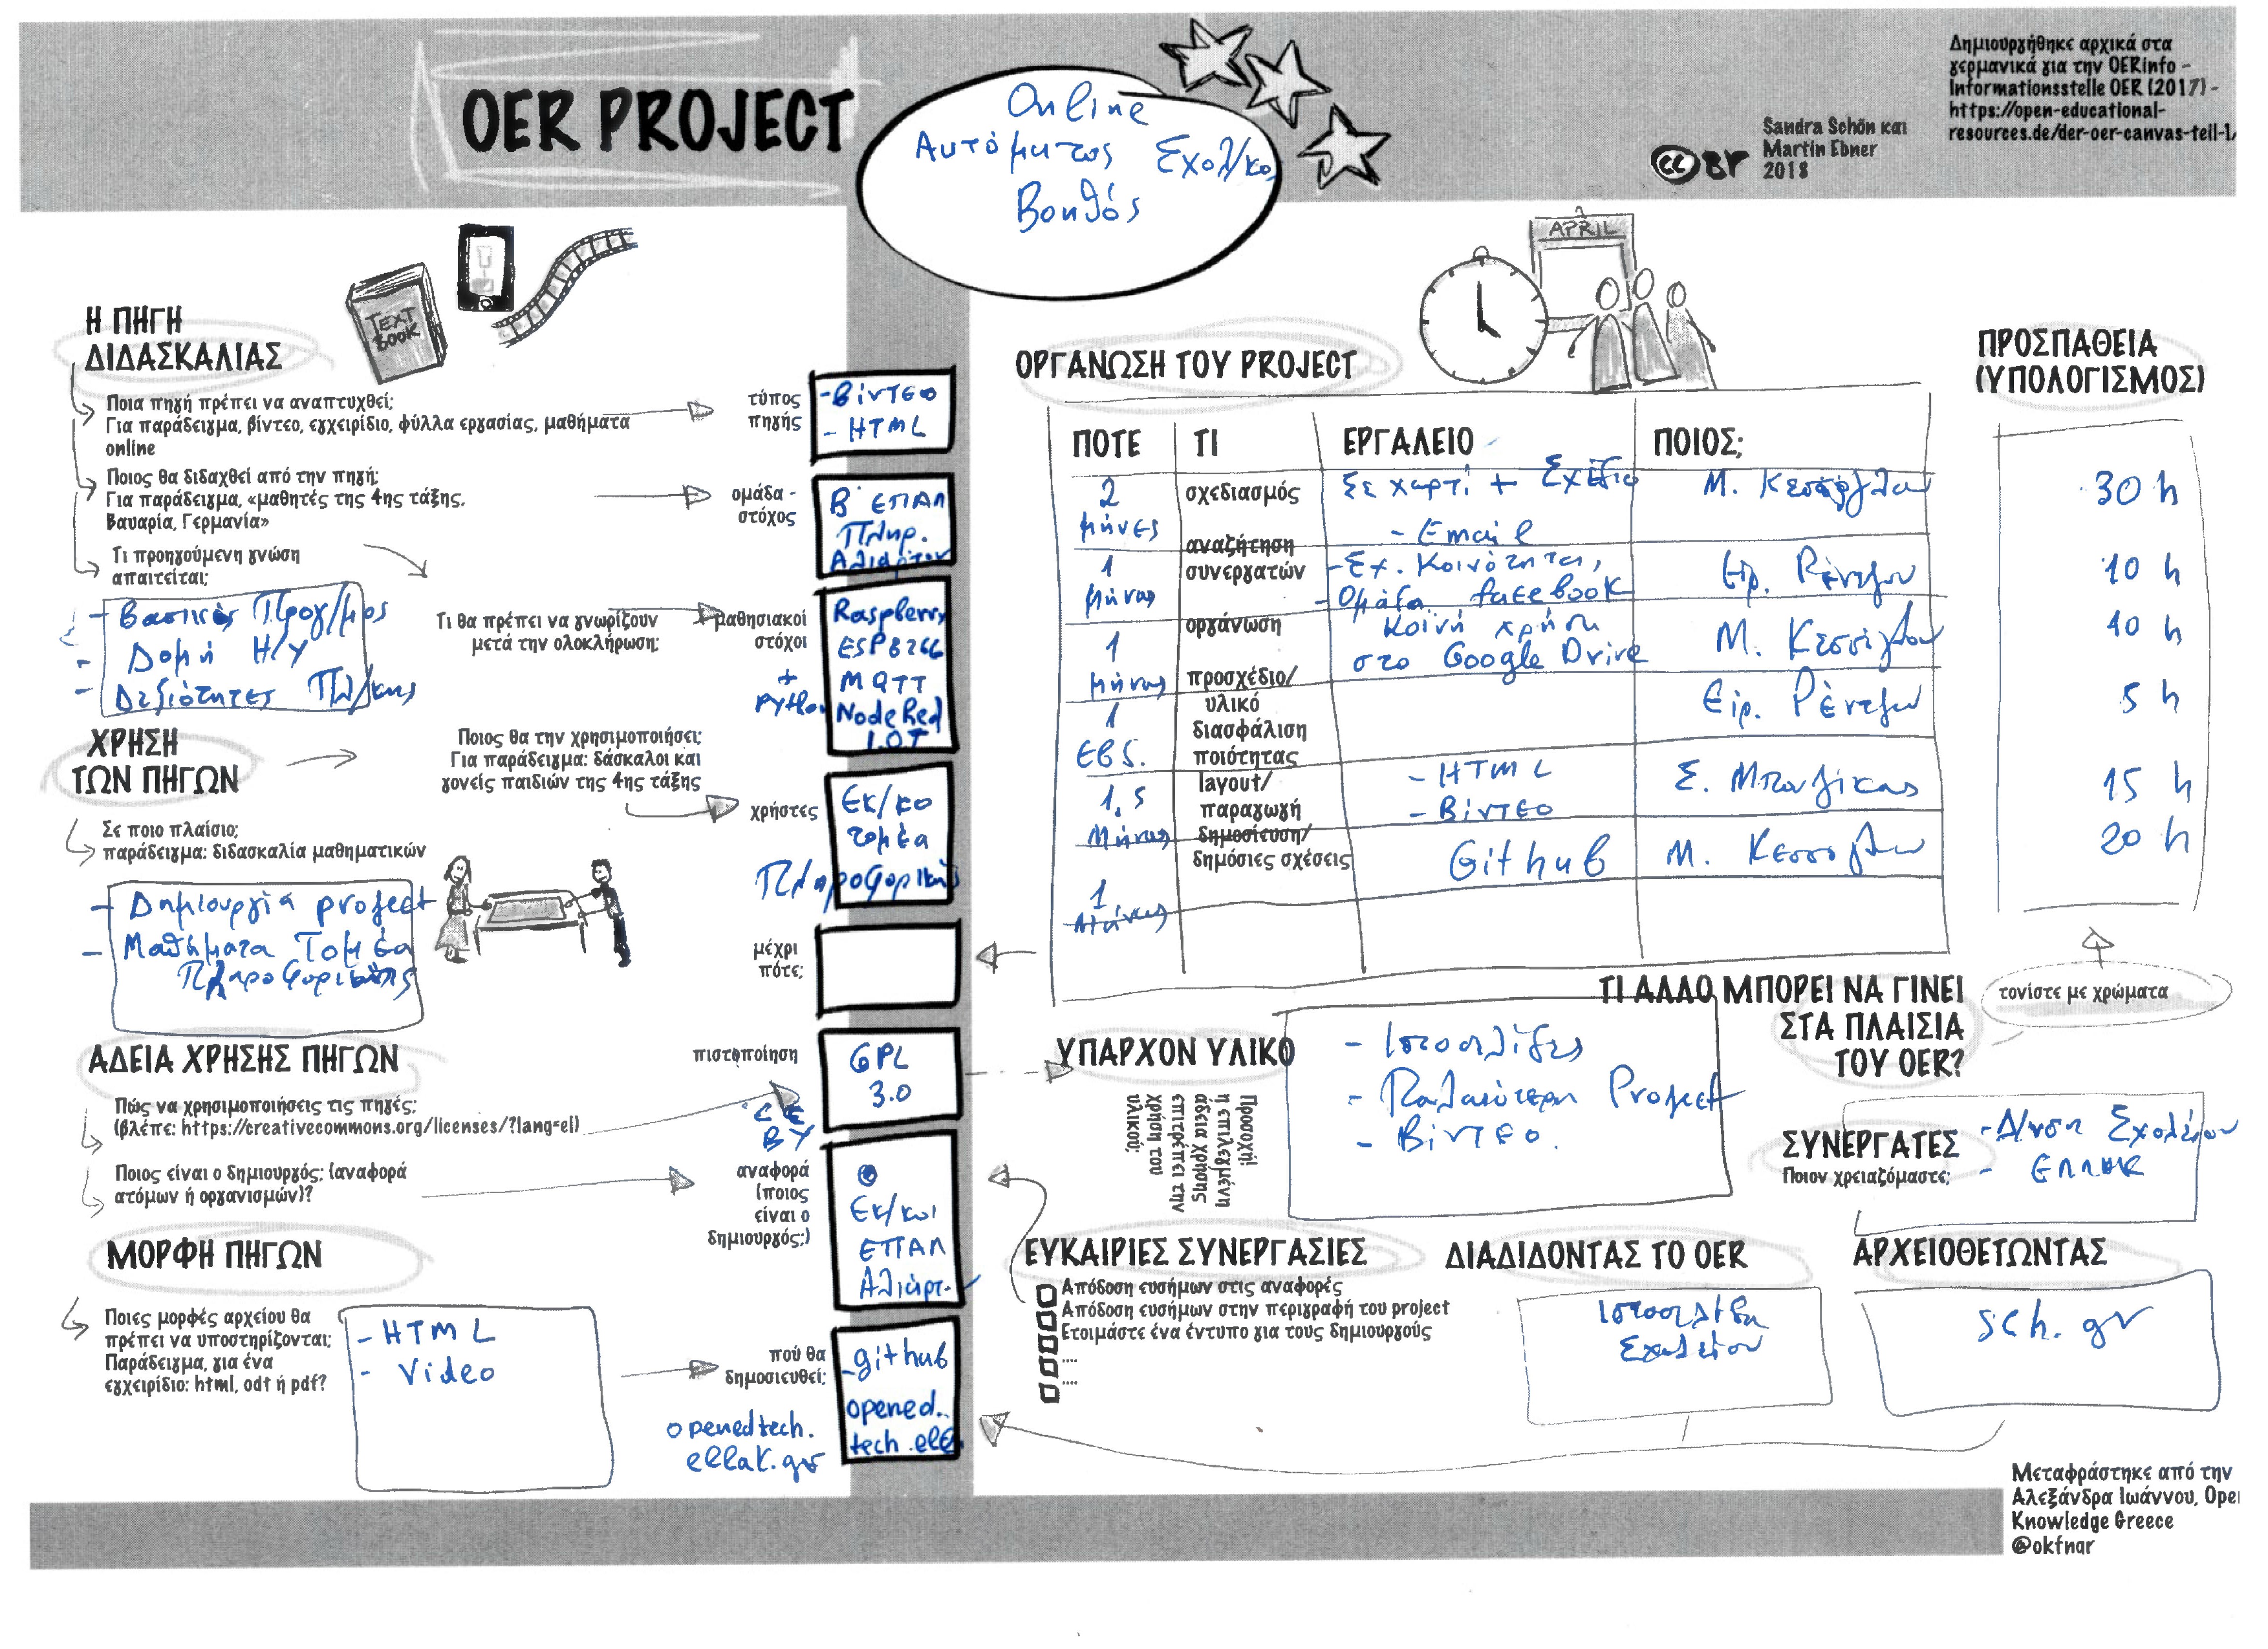 OER PROJECT
Online
Αυτόματος Σχολ/κος
Βοηθός
Sandra Schön και
Martin Ebner
2018
cc BY
Δημιουργήθηκε αρχικά στα
γερμανικά για την OERinfo –
Informationsstelle OER (2017) -
https://open-educational-
resources.de/der-oer-canvas-teil-1/
TEXT
BOOK
APRIL
Η ΠΗΓΗ
ΔΙΔΑΣΚΑΛΙΑΣ
Ποια πηγή πρέπει να αναπτυχθεί;
Για παράδειγμα, βίντεο, εγχειρίδιο, φύλλα εργασίας, μαθήματα
online
τύπος
πηγής
- Βίντεο
- HTML
Ποιος θα διδαχθεί από την πηγή;
Για παράδειγμα, «μαθητές της 4ης τάξης,
Βαυαρία, Γερμανία»
ομάδα -
στόχος
Β' ΕΠΑΛ
Πληρ.
Αλιάρτου
Τι προηγούμενη γνώση
απαιτείται;
- Βασικός Προγ/μος
- Δομή Η/Υ
- Δεξιότητες Πλ/κης
Τι θα πρέπει να γνωρίζουν
μετά την ολοκλήρωση;
μαθησιακοί
στόχοι
Raspberry
ESP8266
MQTT
Node Red
I.O.T
+
Python
ΧΡΗΣΗ
ΤΩΝ ΠΗΓΩΝ
Ποιος θα την χρησιμοποιήσει;
Για παράδειγμα: δάσκαλοι και
γονείς παιδιών της 4ης τάξης
χρήστες
Εκ/κο
τομέα
Πληροφορικής
Σε ποιο πλαίσιο;
παράδειγμα: διδασκαλία μαθηματικών
- Δημιουργία project
- Μαθήματα Τομέα
Πληροφορικής
μέχρι
πότε;
ΑΔΕΙΑ ΧΡΗΣΗΣ ΠΗΓΩΝ
πιστοποίηση
GPL
3.0
BY
Πώς να χρησιμοποιήσεις τις πηγές;
(βλέπε: https://creativecommons.org/licenses/?lang=el)
Ποιος είναι ο δημιουργός; (αναφορά
ατόμων ή οργανισμών)?
αναφορά
(ποιος
είναι ο
δημιουργός;)
Εκ/κοι
ΕΠΑΛ
Αλιάρτ.
ΜΟΡΦΗ ΠΗΓΩΝ
Ποιες μορφές αρχείου θα
πρέπει να υποστηρίζονται;
Παράδειγμα, για ένα
εγχειρίδιο: html, odt ή pdf?
- HTML
- Video
πού θα
δημοσιευθεί;
-github
opened..
tech.ell
openedtech.
ellak.gr
ΟΡΓΑΝΩΣΗ ΤΟΥ PROJECT
ΠΡΟΣΠΑΘΕΙΑ
(ΥΠΟΛΟΓΙΣΜΟΣ)
ΠΟΤΕ ΤΙ ΕΡΓΑΛΕΙΟ ΠΟΙΟΣ;
2 μήνες
σχεδιασμός
Σε χαρτί + Σχέδιο
- Email
Μ. Κεσσόγλου
30 h
1 μήνας
αναζήτηση
συνεργατών
- Σχ. Κοινότητα,
- Ομάδα facebook
Ειρ. Ρέντζου
10 h
1 μήνας
οργάνωση
Κοινή χρήση
στο Google Drive
Μ. Κεσσόγλου
10 h
1 εβδ.
προσχέδιο/
υλικό
διασφάλιση
ποιότητας
Ειρ. Ρέντζου
5 h
1,5 Μήνας
layout/
παραγωγή
- HTML
- Βίντεο
15 h
1 Μήνας
δημοσίευση/
δημόσιες σχέσεις
Github
Μ. Κεσσόγλου
20 h
τονίστε με χρώματα
ΤΙ ΑΛΛΟ ΜΠΟΡΕΙ ΝΑ ΓΙΝΕΙ
ΣΤΑ ΠΛΑΙΣΙΑ
ΤΟΥ OER?
ΥΠΑΡΧΟΝ ΥΛΙΚΟ
Προσοχή!
η επιλεγμένη
άδεια χρήσης
επιτρέπει την
χρήση του
υλικού;
- Ιστοσελίδες
- Παλαιότερη Project
- Βίντεο.
ΣΥΝΕΡΓΑΤΕΣ
Ποιον χρειαζόμαστε;
- Δ/νση Σχολείου
- ΕΛΛΑΚ
ΕΥΚΑΙΡΙΕΣ ΣΥΝΕΡΓΑΣΙΕΣ
Απόδοση ευσήμων στις αναφορές
Απόδοση ευσήμων στην περιγραφή του project
Ετοιμάστε ένα έντυπο για τους δημιουργούς
....
....
ΔΙΑΔΙΔΟΝΤΑΣ ΤΟ OER
Ιστοσελίδα
Σχολείου
ΑΡΧΕΙΟΘΕΤΩΝΤΑΣ
sch.gr
Μεταφράστηκε από την
Αλεξάνδρα Ιωάννου, Ope
Knowledge Greece
@okfngr